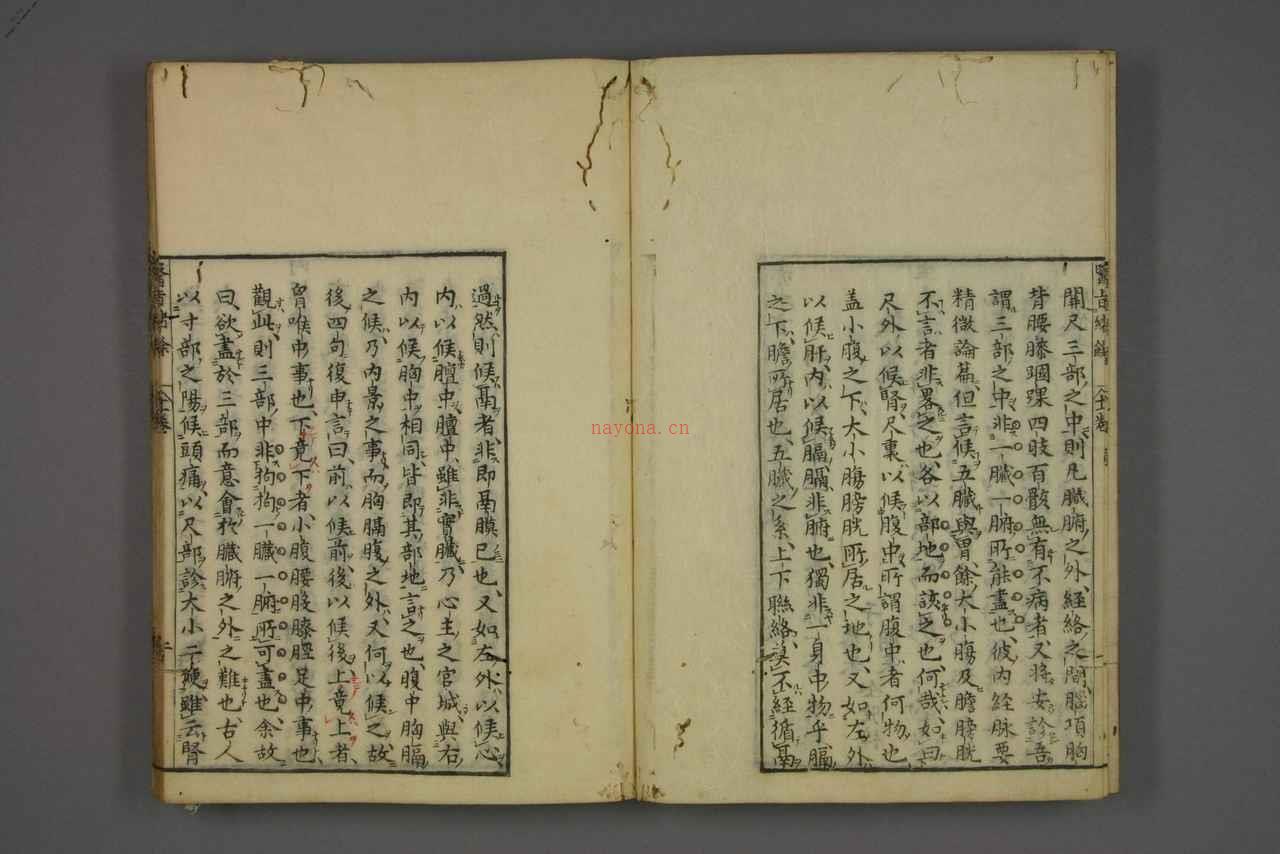 關尺三部之中則凡臟腑之外經絡之間腦項胸
背腰膝膕踝四肢百骸無有不病者又將安診吾
謂三部之中非一臟一腑所能盡也彼内经脉要
精微論篇但言候五臟與胃餘大小膓及膽膀胱
不言者非畧之也各以部地而該之也何哉如曰
尺外以候腎尺裏以候腹中所謂腹中者何物也
盖小腹之下大小膓膀胱所居之地也又如左外
以候肝内以候膈膈非腑也獨非一身中物乎膈
之下膽所居也五臟之系上下聯絡莫不經循鬲
過然則候鬲者非即鬲膜已也又如左外以候心
内以候膻中膻中雖非實臟乃心主之宮城與右
内以候胸中相同皆即其部地言之也腹中胸膈
之候乃内景之事而胸膈腹之外又何以候之故
後四句復申言曰前以候前後以候後上竟上者
胷喉中事也下竟下者小腹腰股膝脛足中事也
觀此則三部中非拘拘一臟一腑所可盡也余故
曰欲盡於三部而意會扵臟腑之外之難也古人
以寸部之陽候頭痛以尺部診大小二便雖云腎
nayona.cn